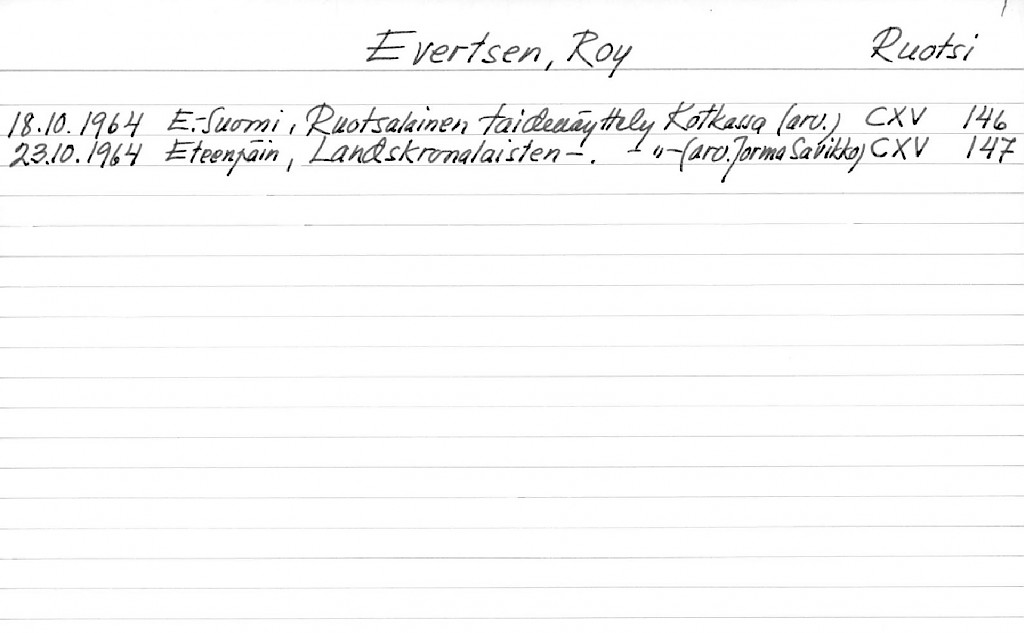 Evertsen, Roy Ruotsi
18.10.1964 E.-Suomi, Ruotsalainen taidenäyttely Kotkassa (arv.) CXV 146
23.10.1964 Eteenpäin, Landskronalaisten -. - " - (arv. Jorma Savikko) CXV 147